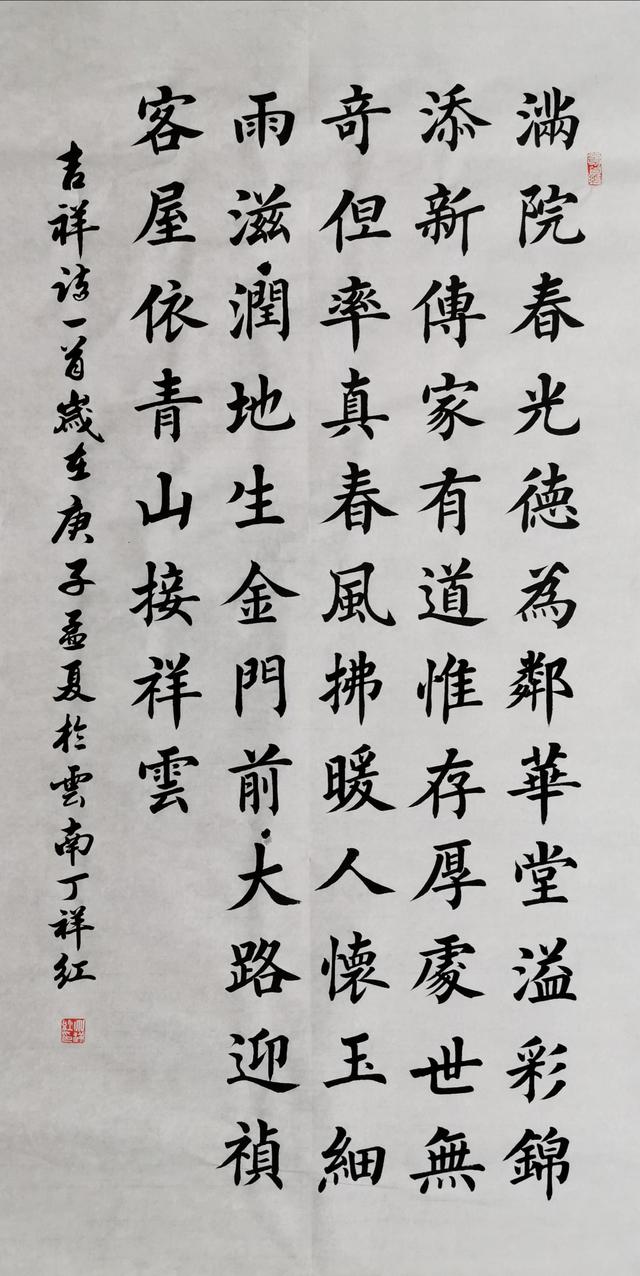 滿院春光德為鄰華堂溢彩錦
添新傳家有道惟存厚處世無
奇但率真春風拂暖人懷玉細
雨滋潤地生金門前大路迎禎
客屋依青山接祥雲
吉祥詩一首歲在庚子孟夏於雲南丁祥紅